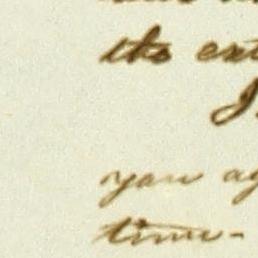 its ext
I
you ag
time-